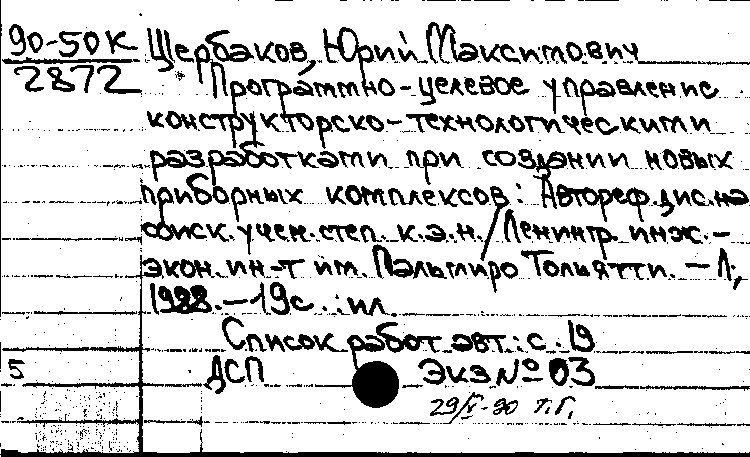 90-50К Щербаков, Юрий Максимович
2872 Программно-целевое управление
конструкторско-технологическими
разработками при создании новых
приборных комплексов: Автореф. дис. на
соиск. учен. степ. к.э.н. / Ленингр. инж.-
экон. ин-т им. Пальмиро Тольятти. — Л.,
1988. — 19с. : ил.
Список работ авт.: с. 19
5 ДСП Экз № 03
29/V-90 Т.Г.